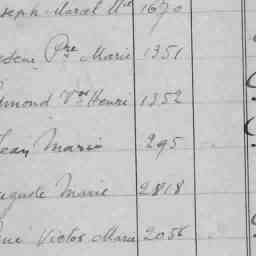 seph Marcel Mel 1670
ène Pre Marie 1351
dmond Vor Henri 1352
Jean Marie 295
uguste Marie 2818
né Victor Marie 2056